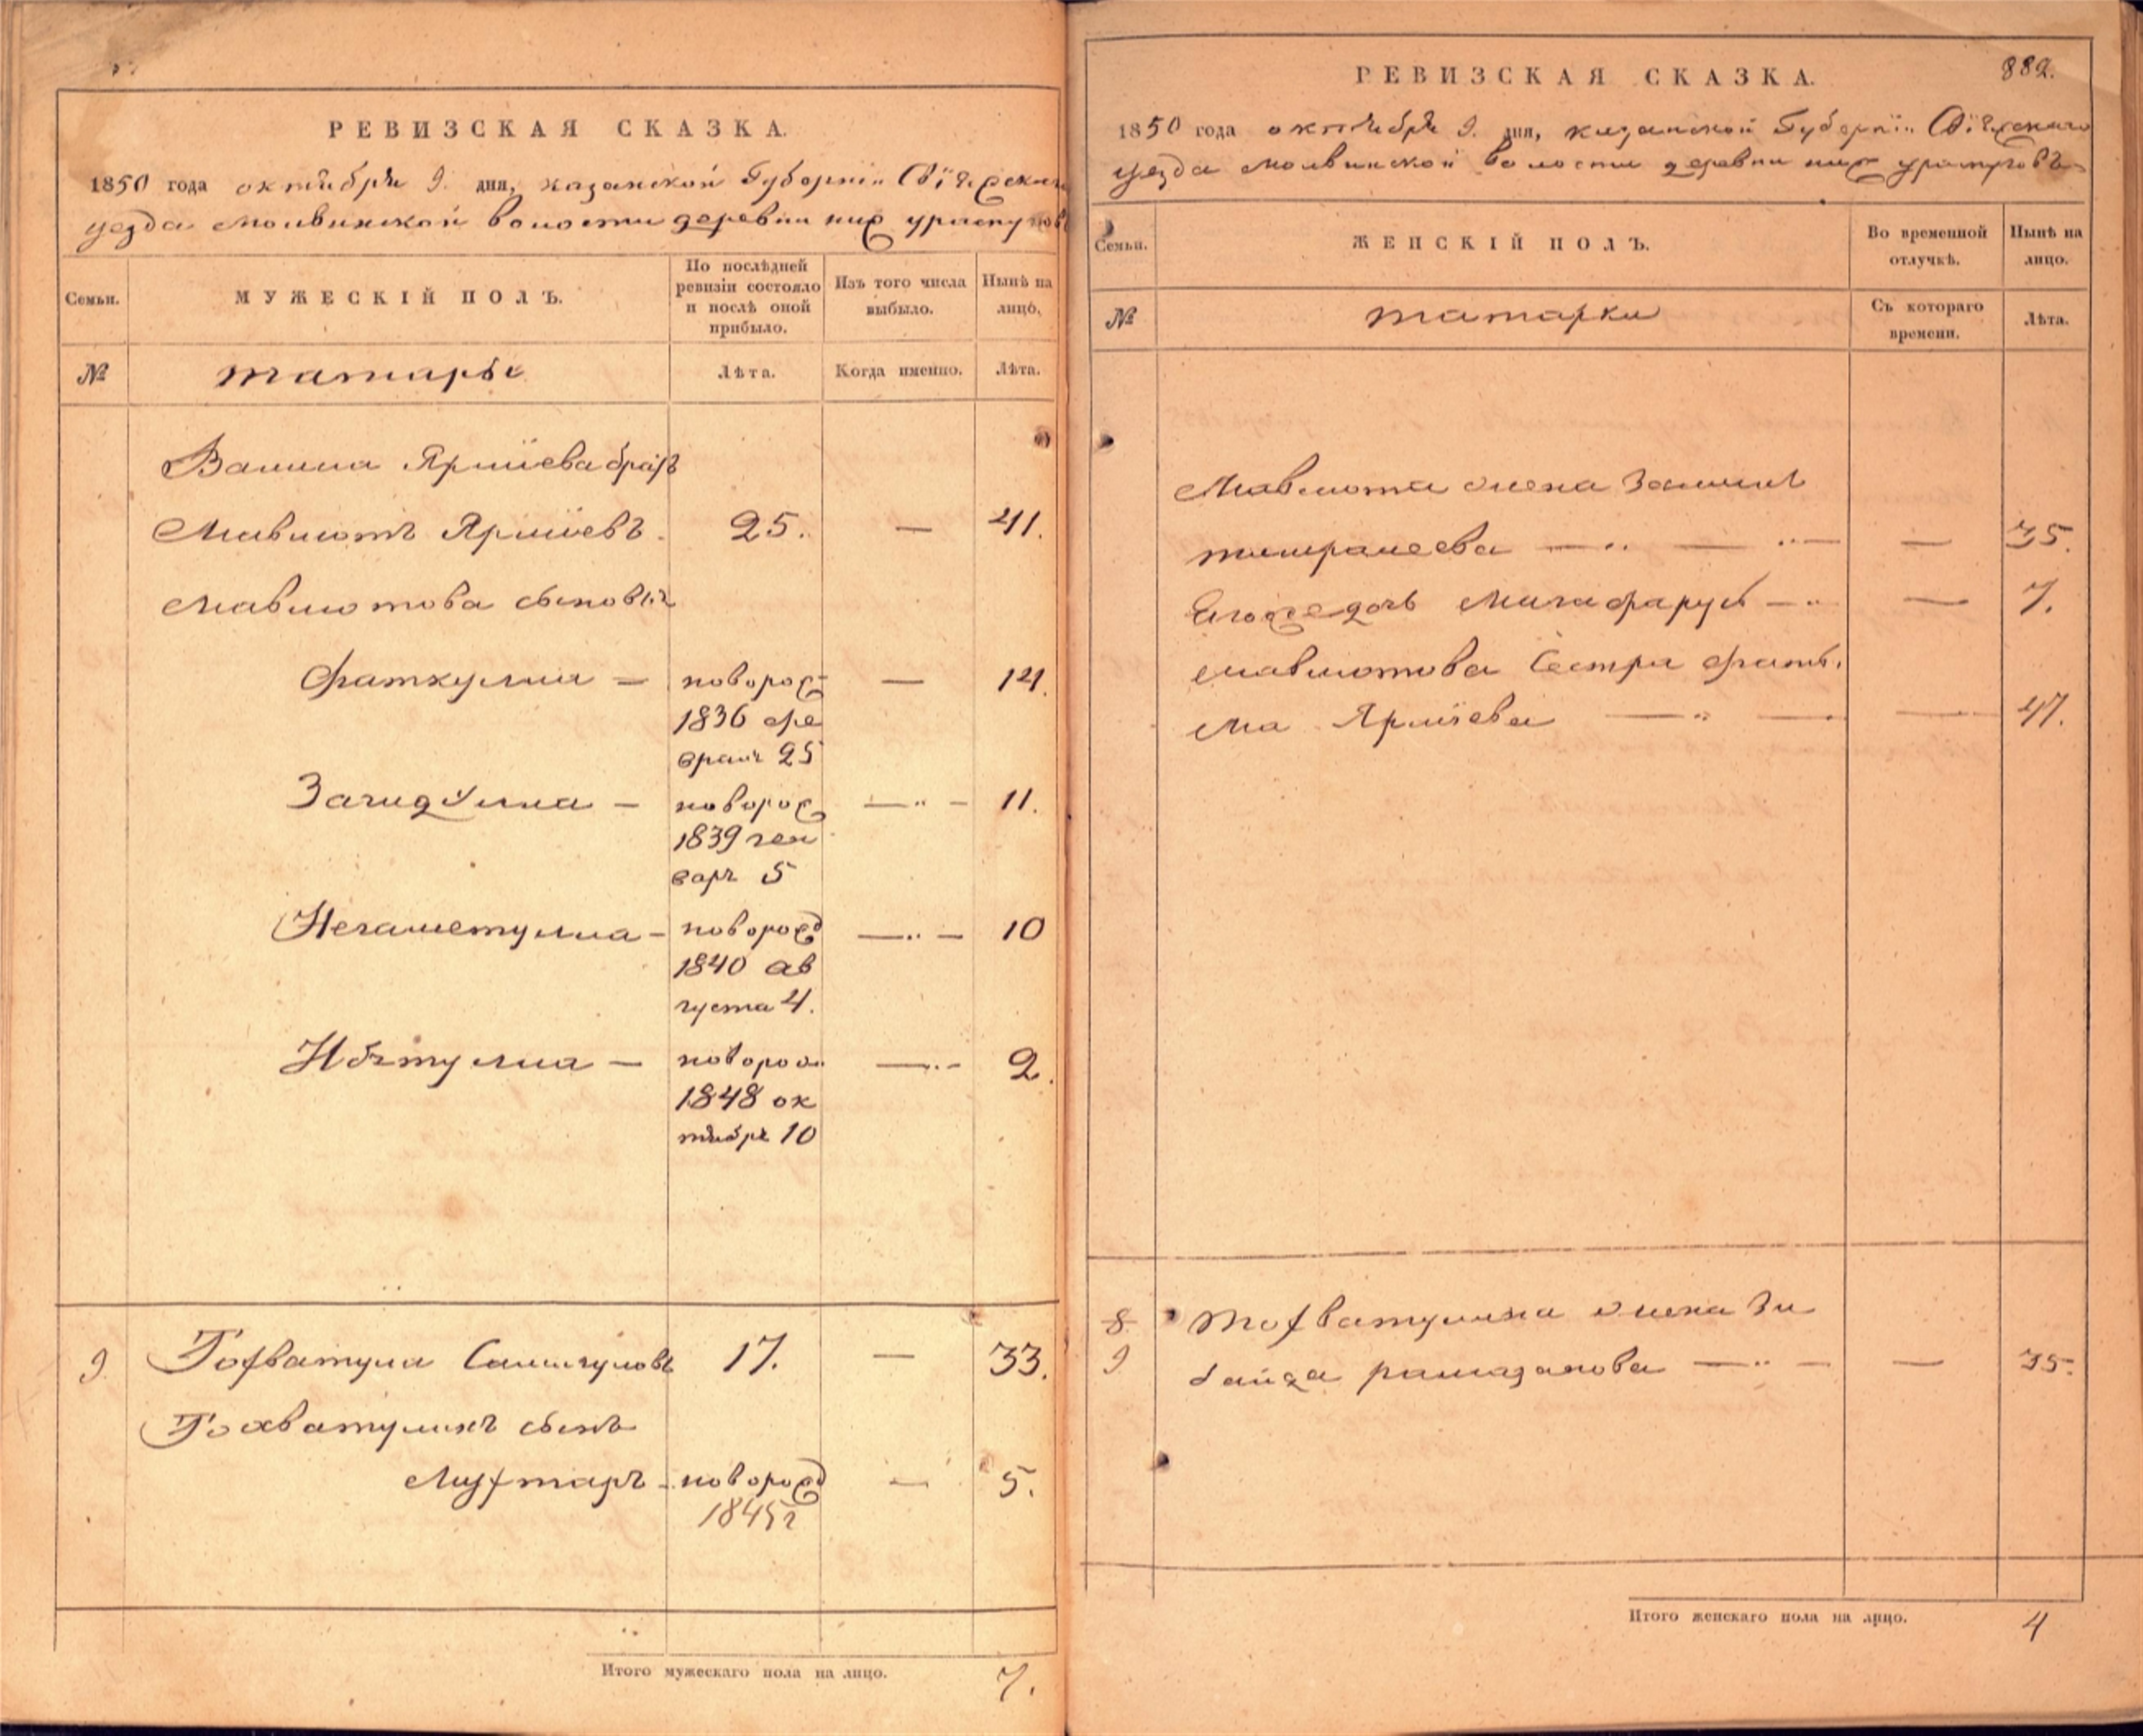 РЕВИЗСКАЯ СКАЗКА.
1850 года октября 9. дня, казанской Губернiи Свiяжскаго
уезда молвинской волости деревни ниж уратугов
Семьи.
МУЖЕСКІЙ ПОЛЪ.
По послѣдней ревизіи состояло и послѣ оной прибыло.
Изъ того числа выбыло.
Нынѣ на лицо.
№
татары
Лѣта.
Когда именно.
Лѣта.
Ямиева братъ
Мавлютъ Ямиевъ. 25. — 41.
Мавлютова сыновья
Фаткулла — новорож — 14.
1836 фе
враля 25
Загидулла — новорож — 11.
1839 ген
варя 5
Негаметулла — новорожд — 10
1840 ав
густа 4.
— новорож — 2.
1848 ок
тября 10
9. Тохватулла 17. — 33.
Тохватулинъ сынъ
Мухтаръ — новорожд — 5.
1845 г
Итого мужескаго пола на лицо. 7.
РЕВИЗСКАЯ СКАЗКА. 882.
1850 года октября 9. дня, казанской Губернiи Свiяжскаго
уезда молвинской волости деревни ниж уратуговъ
Семьи.
ЖЕНСКІЙ ПОЛЪ.
Во временной отлучкѣ.
Нынѣ на лицо.
№
татарки
Съ котораго времени.
Лѣта.
Мавлюта жена
— 35.
Егоже дочь — 7.
мавлютова сестра фать
ма — 47.
8.
9
Тохватулина жена Зи
байда рамазанова — 35.
Итого женскаго пола на лицо. 4